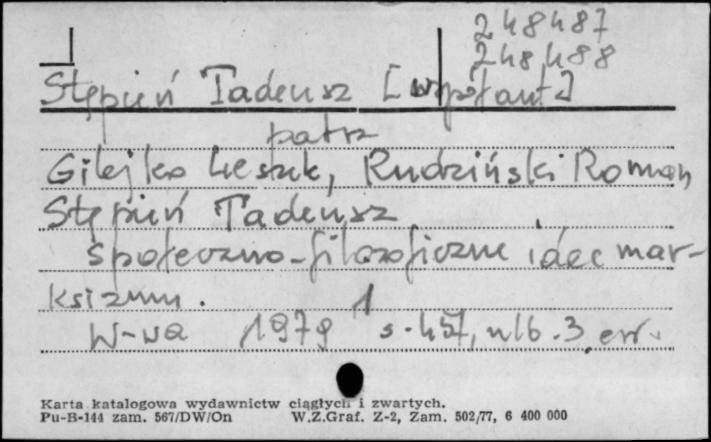 248487
248488
Stępień Tadeusz [współaut.]
patrz
Gilejko Leszek, Rudziński Roman
Stępień Tadeusz
Społeczno-filozoficzne idee mar-
ksizmu.
W-wa 1979 s. 457, nlb. 3, err.
Karta katalogowa wydawnictw ciągłych i zwartych.
Pu-B-144 zam. 567/DW/On W.Z.Graf. Z-2, Zam. 502/77, 6 400 000